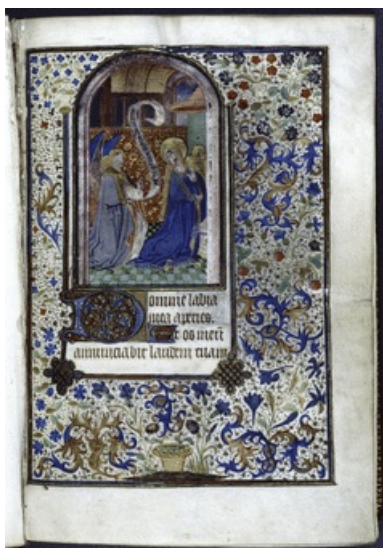 Domine labia
mea aperies.
Et os meu
annunciabit laudem tuam